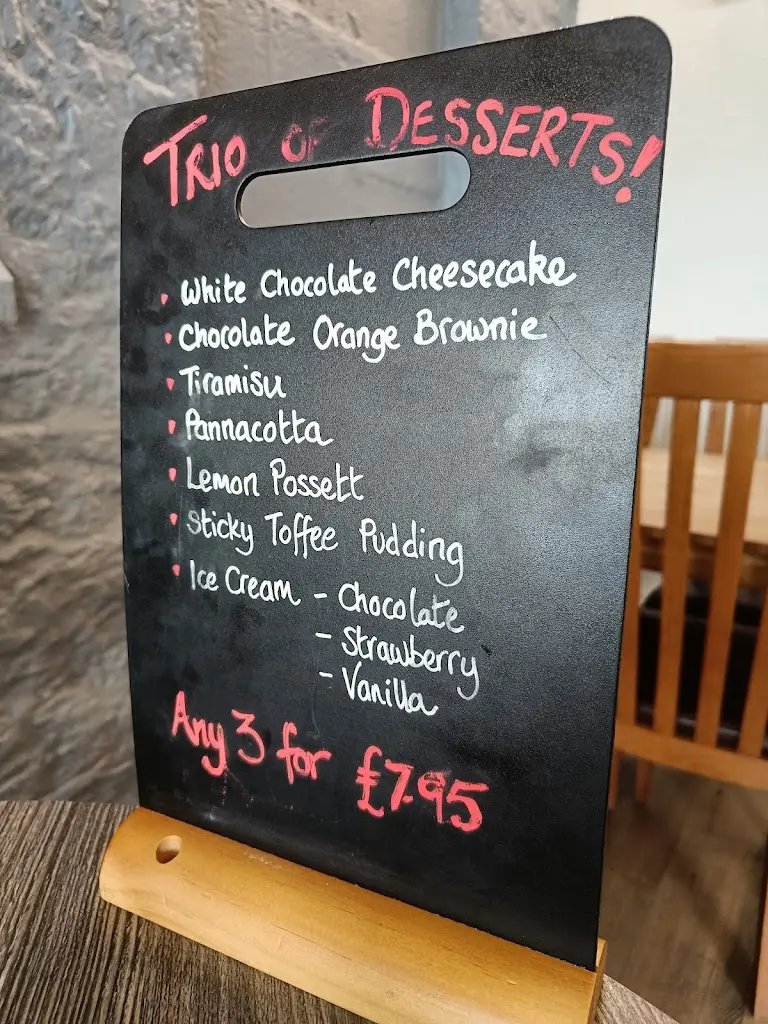 TRIO OF DESSERTS!
White Chocolate Cheesecake
Chocolate Orange Brownie
Tiramisu
Pannacotta
Lemon Possett
Sticky Toffee Pudding
Ice Cream - Chocolate
- Strawberry
- Vanilla
Any 3 for £7.95